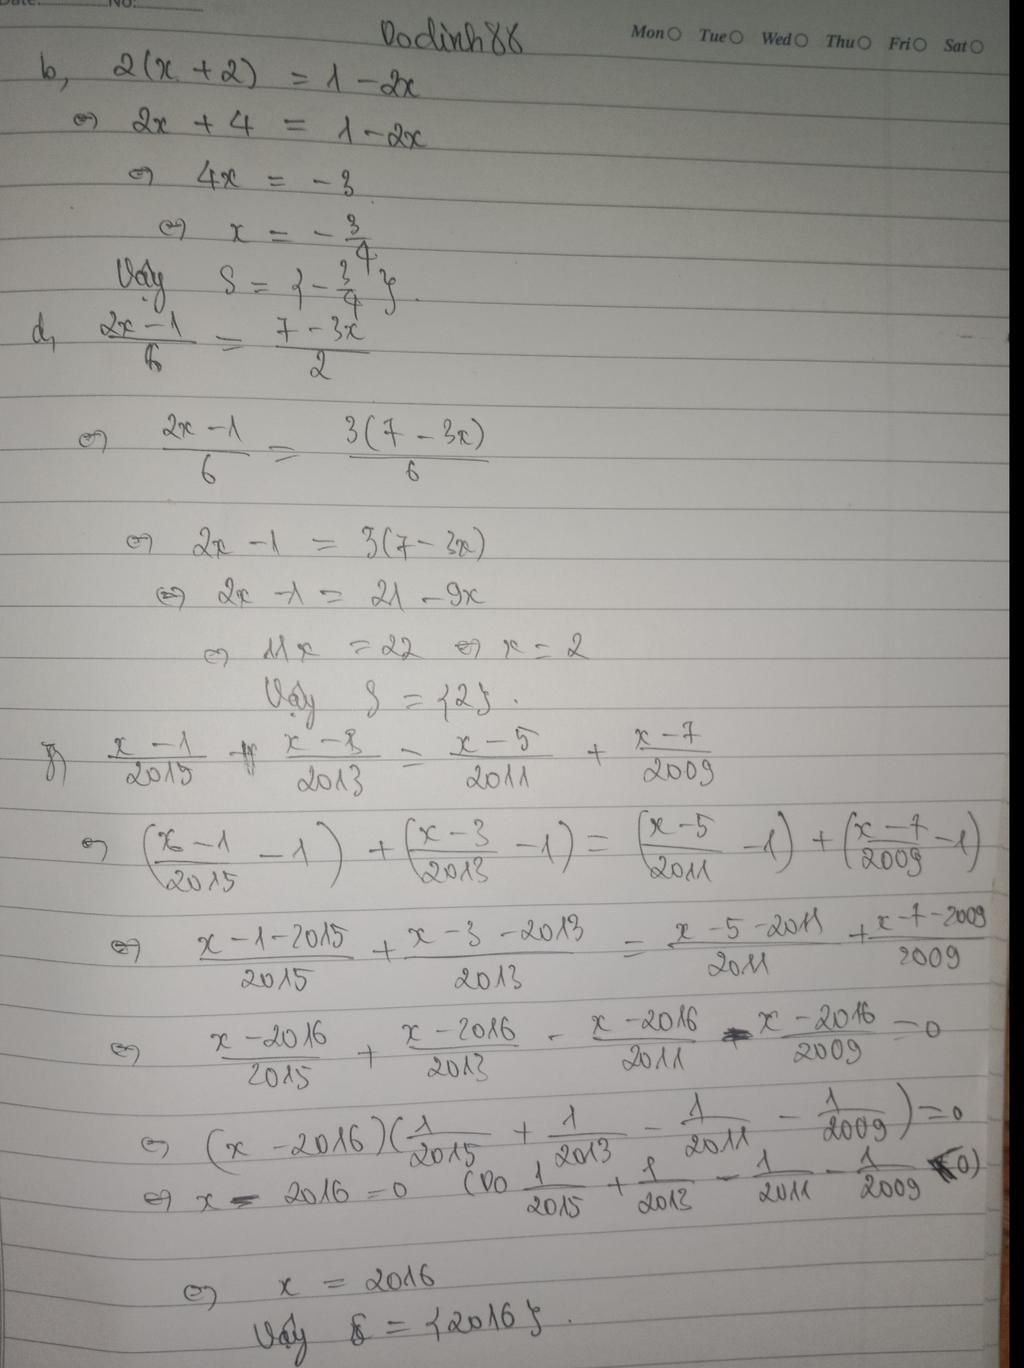 No:
Dodinh88
Mon Tue Wed Thu Fri Sat
b, 2(x + 2) = 1 - 2x
⇔ 2x + 4 = 1 - 2x
⇔ 4x = -3
⇔ x = -3/4
Vậy S = {-3/4}.
d, (2x - 1)/6 = (7 - 3x)/2
⇔ (2x - 1)/6 = 3(7 - 3x)/6
⇔ 2x - 1 = 3(7 - 3x)
⇔ 2x - 1 = 21 - 9x
⇔ 11x = 22 ⇔ x = 2
Vậy S = {2}.
(x - 1)/2015 + (x - 3)/2013 = (x - 5)/2011 + (x - 7)/2009
⇔ ((x - 1)/2015 - 1) + ((x - 3)/2013 - 1) = ((x - 5)/2011 - 1) + ((x - 7)/2009 - 1)
⇔ (x - 1 - 2015)/2015 + (x - 3 - 2013)/2013 = (x - 5 - 2011)/2011 + (x - 7 - 2009)/2009
⇔ (x - 2016)/2015 + (x - 2016)/2013 - (x - 2016)/2011 - (x - 2016)/2009 = 0
⇔ (x - 2016)(1/2015 + 1/2013 - 1/2011 - 1/2009) = 0
⇔ x - 2016 = 0 (Do 1/2015 + 1/2013 - 1/2011 - 1/2009 0)
⇔ x = 2016
Vậy S = {2016}.